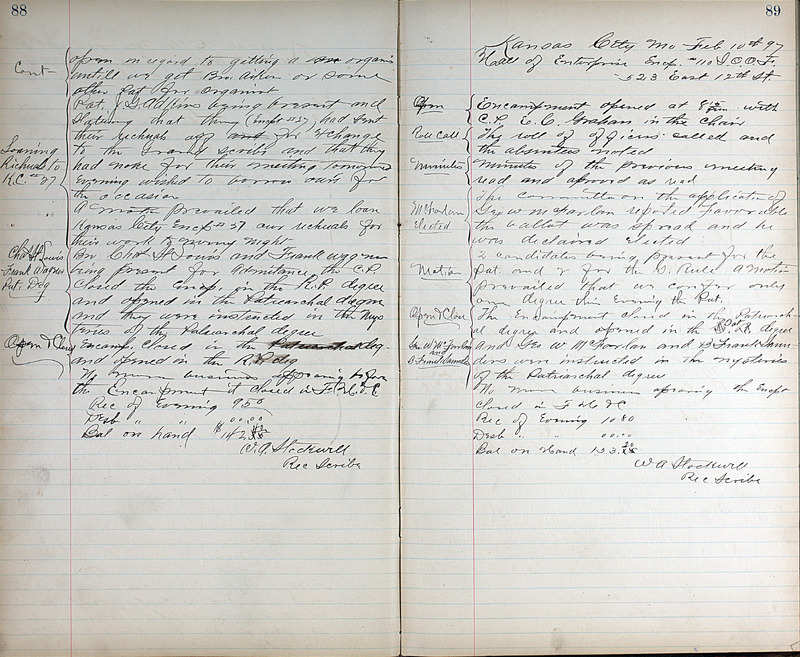 88
Cont
open in regard to getting a organist
untill we got Bro. Aiken or some
other Pat for organist
Pat. J G Adkins being present and
stating that they (Encpt #37) had sent
their Rechuals off for Exchange
to the Grand Scribe and that they
Loaning
Richuals to
K.C. #37
had none for their meeting
Evening wished to borrow ours for
the occasion
" "
A motion prevailed that we loan
Kansas City Encp # 37 our rechuals for
their work to morrow night
Chas H Louis
Frank Wagner
Pat. Deg
Bro Chas H Louis and Frank Wagner
being present for admittance the C.P.
closed the Encp. in the R.P. degree
and opened in the Patrarchal degree
and they were instructed in the mys
teries of the Patriarchal degree
Open & Closed
Encamp closed in the Patriarchal deg
and opened in the R.P. deg
No more business appearing before
the Encampment it closed in F. H. & C
Rec of Evening 9 50
Desb " " 00.00
Bal on hand $ 142
W. A. Stockwell
Rec Scribe
89
Kansas City Mo Feb 10th 97
Hall of Enterprise Encp. #110 I.O.O.F.
523 East 12th St
Open
Encampment opened at 8 with
C.P. E. C. Graham in the chair
Roll Call
The roll of officers called and
the absentees noted
Minutes
Minutes of the previous meeting
read and aproved as read
McFarlan
elected
The committee on the application of
Geo W McFarlan reported favorable
the ballot was spread and he
was declared elected
Motion
2 candidates being present for the
Pat. and 2 for the G. Rule a motion
prevailed that we confer only
one degree this Evening the Pat.
Open & Close
The Encampment closed in the Patriarch
al degree and opened in the degree
Geo W McFarlan
and
B Frank Saunders
and Geo W McFarlan and B Frank Saun
ders were instructed in the mysteries
of the Patriarchal degree
No more business apearing the Encpt
closed in F H & C
Rec of Evening 10 80
Desb " " 00.00
Bal on Hand 153.
W A Stockwell
Rec Scribe